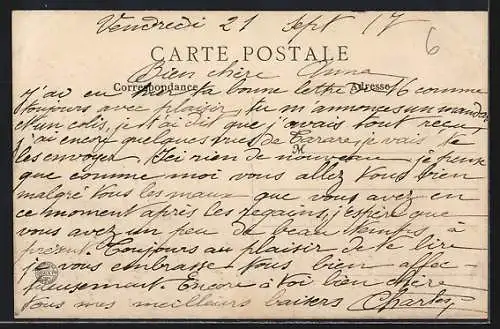 Vendredi 21 Sept 17
6
CARTE POSTALE
Bien chère Anna
Correspondance
Adresse
J'ai eu hier ta bonne lettre du 16 comme
toujours avec plaisir, tu m'annonces un mandat
et un colis, je t'ai dit que j'avais tout reçu
j'ai encore quelques vues de Tarare je vais te
M
les envoyer. Ici rien de nouveau je pense
que comme moi vous allez tous bien
malgré tous les maux que vous avez en
ce moment après les regains, j'espère que
vous avez un peu de beau temps à
présent. Toujours au plaisir de te lire
je vous embrasse tous bien affec
tueusement. Encore à toi bien chère
tous mes meilleurs baisers Charles